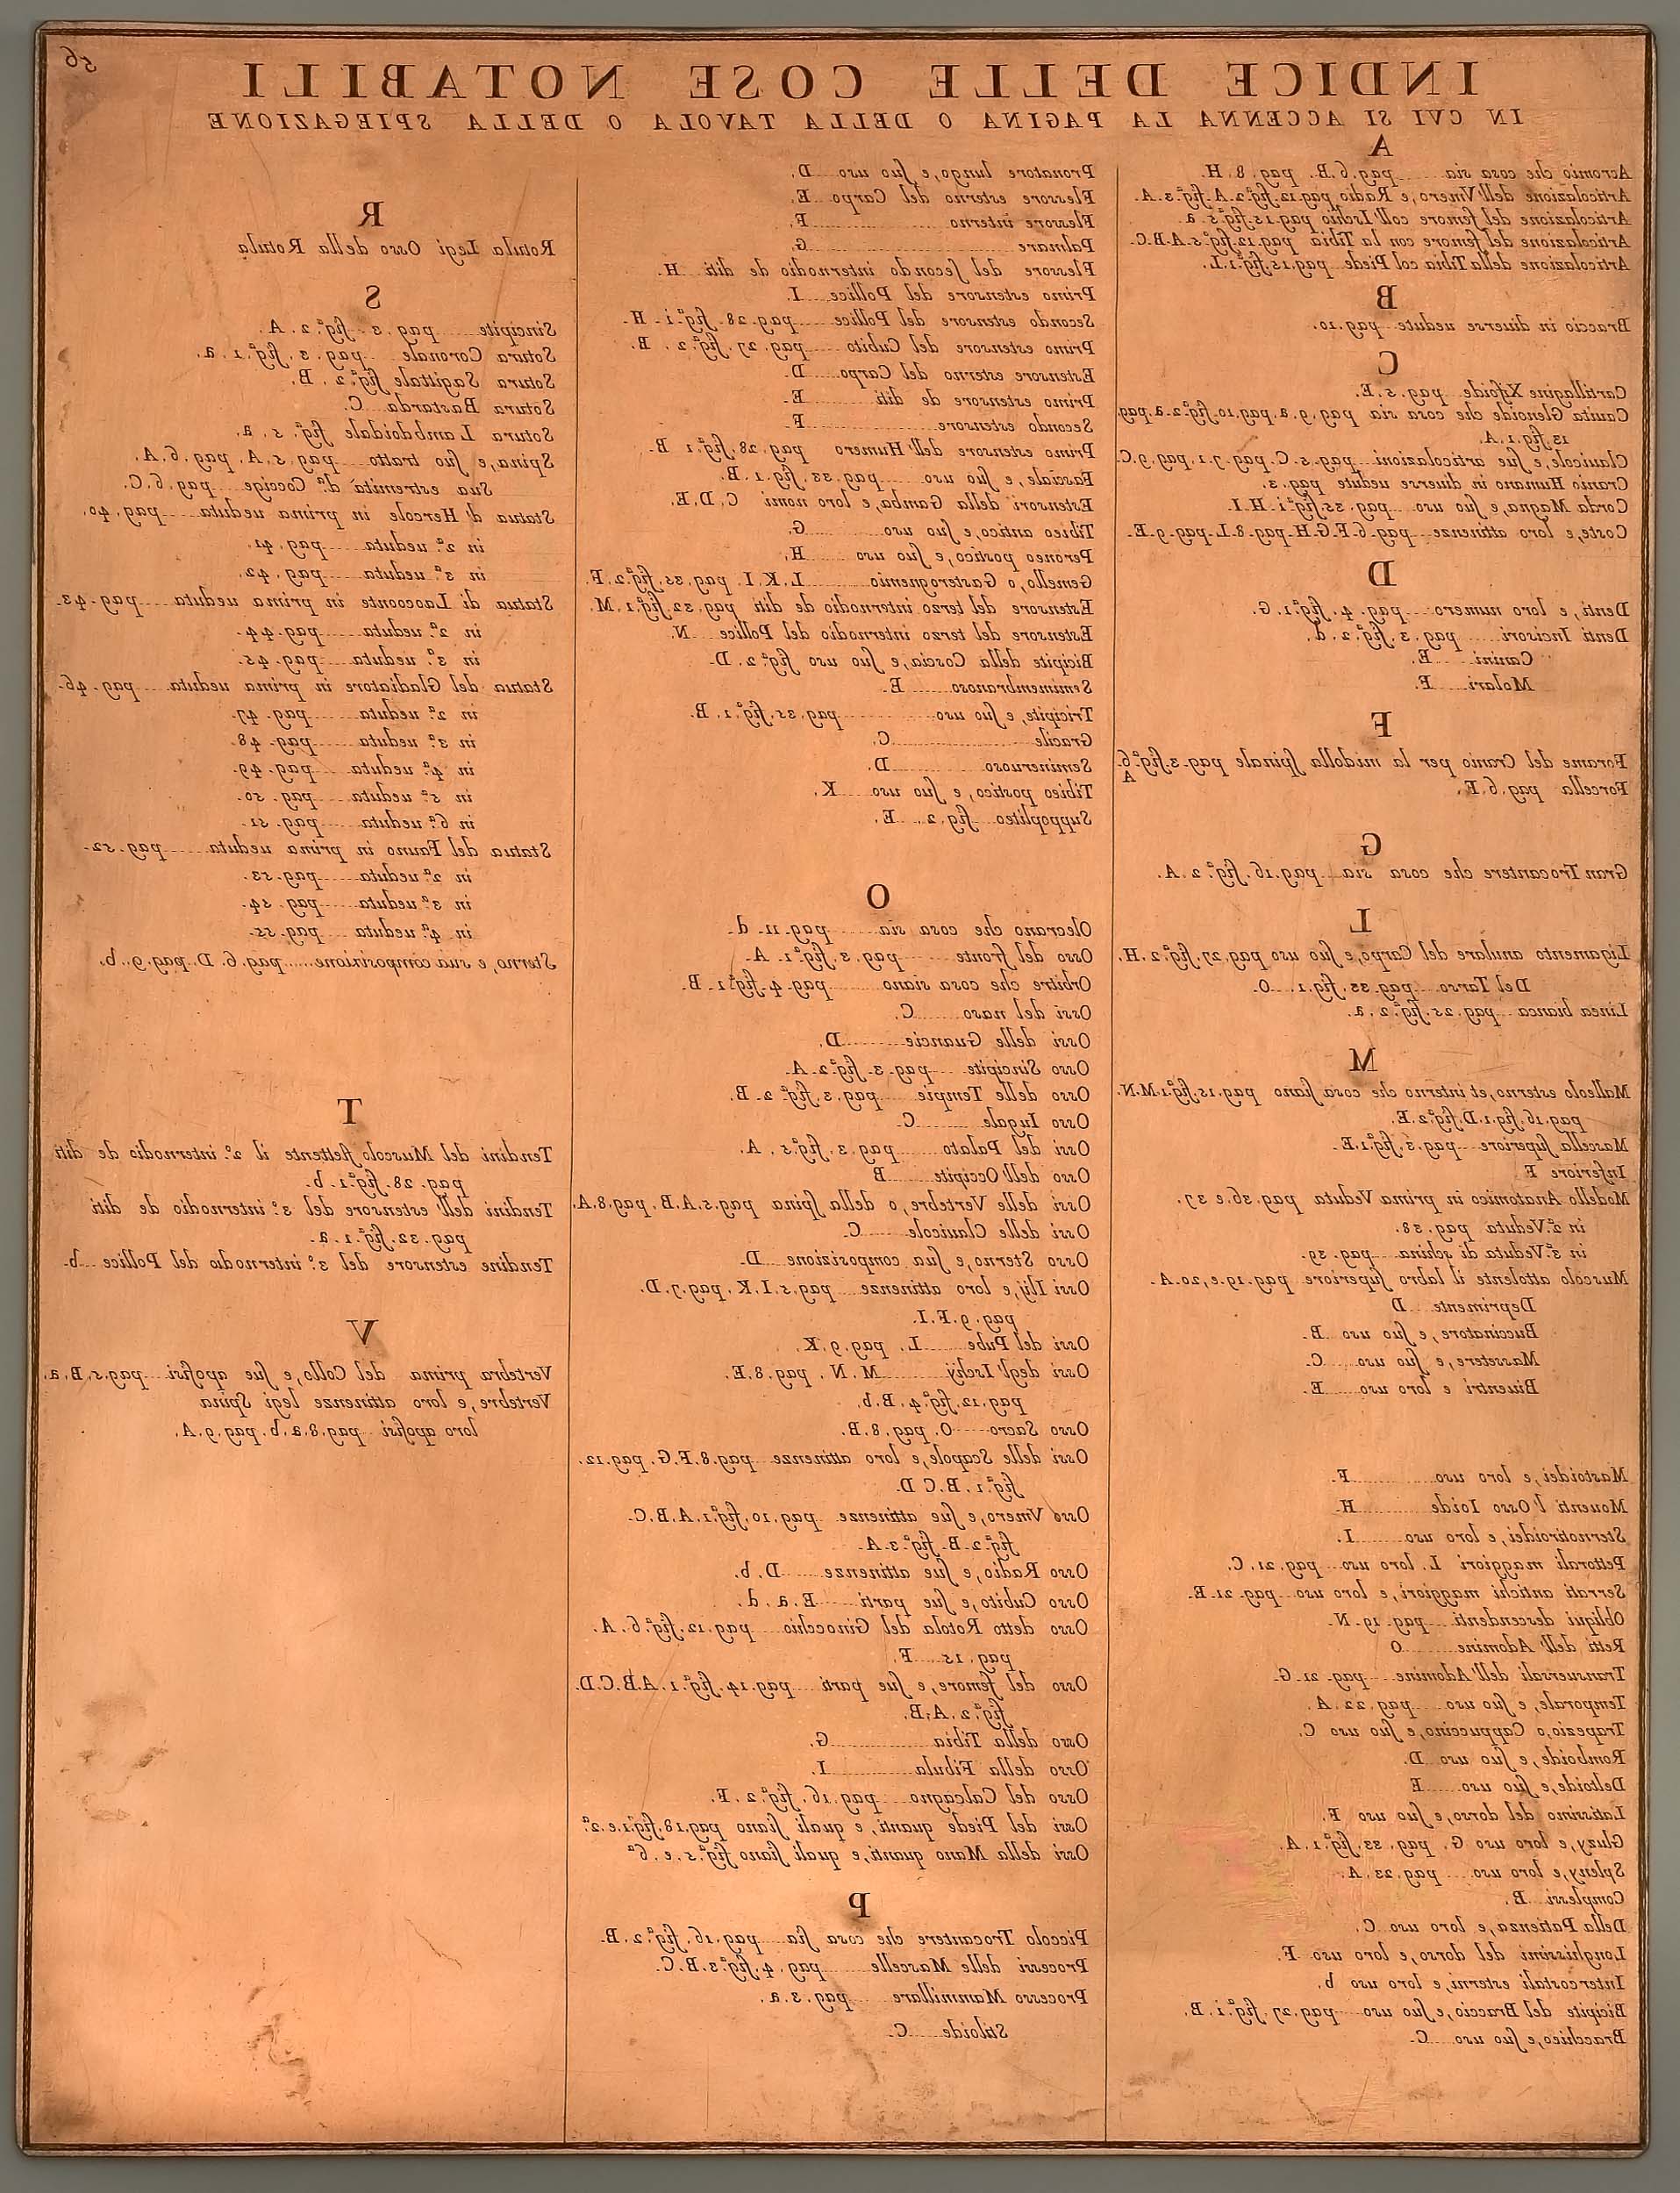 56
INDICE DELLE COSE NOTABILI
IN CVI SI ACCENNA LA PAGINA O DELLA TAVOLA O DELLA SPIEGAZIONE
A
Acromio che cosa sia pag. 6. B. pag. 8. H.
Articolazione dell'Vmero, e Radio pag. 12. figª. 2. A. figª. 3. A.
Articolazione del femore coll'Ischio pag. 15. figª. 5. a
Articolazione del femore con la Tibia pag. 12. figª. 5. A.B.C.
Articolazione della Tibia col Piede pag. 15. figª. 1. L.
B
Braccio in diuerse uedute pag. 10.
C
Cartillagine Xifoide pag. 5. E.
Cauita Glenoide che cosa sia pag. 9. a. pag. 10. figª. 2. a. pag.
13. fig. 1. A.
Clauicule, e sue articolazioni pag. 5. C. pag. 7. 1. pag. 9. C.
Cranio Humano in diuerse uedute pag. 3.
Corda Magna, e suo uso pag. 35. figª. 1. H. I.
Coste, e loro attinenze pag. 6. F. G. H. pag. 8. I. pag. 9. E.
D
Denti, e loro numero pag. 4. figª. 1. G.
Denti Incisori pag. 3. figª. 2. d.
Canini E.
Molari F.
F
Forame del Cranio per la midolla spinale pag. 3. figª. 6.
A
Forcella pag. 6. E.
G
Gran Trocantere che cosa sia pag. 16. figª. 2. A.
L
Ligamento anulare del Carpo, e suo uso pag. 27. figª. 2. H.
Del Tarso pag. 33. fig. 1. O.
Linea bianca pag. 25. figª. 2. a.
M
Malleolo esterno, et interno che cosa siano pag. 15. figª. 1. M. N.
pag. 16. fig. 1. D. figª. 2. E.
Mascella superiore pag. 3. figª. 1. E.
Inferiore F
Modello Anatomico in prima Veduta pag. 36. e 37.
in 2ª. Veduta pag. 38.
in 3ª. Veduta di schina pag. 39.
Muscolo attolente il labro superiore pag. 19. e, 20. A.
Deprimente D
Buccinatore, e suo uso B.
Massetere, e suo uso C.
Biuentri e loro uso E.
Mastoidei, e loro uso F.
Mouenti l'Osso Ioide H.
Sternotiroidei, e loro uso I.
Pettorali maggiori L. loro uso pag. 21. C.
Serrati antichi maggiori, e loro uso pag. 21. E.
Obliqui descendenti pag. 19. N.
Retti dell'Adomine O
Transuersali dell'Adomine pag. 21. G.
Temporale, e suo uso pag. 22. A.
Trapezio, o Cappuccino, e suo uso C.
Romboide, e suo uso D.
Deltoide, e suo uso E
Latissimo del dorso, e suo uso F.
Gluzy, e loro uso G. pag. 33. figª. 1. A.
Spleny, e loro uso pag. 23. A.
Complessi B.
Della Patienza, e loro uso C.
Longhissimi del dorso, e loro uso F.
Intercostali esterni, e loro uso b.
Bicipite del Braccio, e suo uso pag. 27. figª. 1. B.
Bracchieo, e suo uso C.
Pronatore lungo, e suo uso D.
Flessore esterno del Carpo E.
Flessore interno F.
Palmare G.
Flessore del secondo internodio de diti H.
Primo estensore del Pollice I.
Secondo estensore del Pollice pag. 28. figª. 1. H.
Primo estensore del Cubito pag. 27. figª. 2. B.
Estensore esterno del Carpo D.
Primo estensore de diti E.
Secondo estensore F.
Primo estensore dell'Humero pag. 28. figª. 1 B.
Fasciale, e suo uso pag. 33. fig. 1. B.
Estensori della Gamba, e loro nomi C. D. E.
Tibieo antico, e suo uso G.
Peroneo postico, e suo uso H.
Gemello, o Gasterognemio L. K. I. pag. 35. figª. 2. F.
Estensore del terzo internodio de diti pag. 32. figª. 1. M.
Estensore del terzo internodio del Pollice N.
Bicipite della Coscia, e suo uso figª. 2. D.
Semimembranoso E.
Tricipite, e suo uso pag. 35. figª. 1. B.
Gracile C.
Semineruoso D.
Tibieo postico, e suo uso K.
Suppopliteo fig. 2. E.
O
Olecrano che cosa sia pag. 11. d.
Osso del fronte pag. 3. figª. 1. A.
Orbitre che cosa siano pag. 4. figª. 1. B.
Ossi del naso C.
Ossi delle Guancie D.
Osso Sincipite pag. 3. figª. 2. A.
Osso delle Tempie pag. 3. figª. 2. B.
Osso Iugale C.
Ossi del Palato pag. 3. figª. 5. A.
Osso dell'Occipite B
Ossi delle Vertebre, o della spina pag. 5. A. B. pag. 8. A.
Ossi delle Clauicule C.
Osso Sterno, e sua composizione D.
Ossi Ilij, e loro attinenze pag. 5. I. K. pag. 7. D.
pag. 9. F. I.
Ossi del Pube L. pag. 9. K.
Ossi degl'Ischÿ M. N. pag. 8. E.
pag. 12. figª. 4. B. b.
Osso Sacro O. pag. 8. B.
Ossi delle Scapole, e loro attinenze pag. 8. F. G. pag. 12.
figª. 1. B. C D.
Osso Vmero, e sue attinenze pag. 10. figª. 1. A. B. C.
figª. 2. B. figª. 3. A.
Osso Radio, e sue attinenze D. b.
Osso Cubito, e sue parti E. a. d.
Osso detto Rotola del Ginocchio pag. 12. figª. 6. A.
pag. 15 F.
Osso del femore, e sue parti pag. 14. figª. 1. A.B.C.D.
figª. 2. A. B.
Osso della Tibia G.
Osso della Fibula I.
Osso del Calcagno pag. 16. figª. 2. F.
Ossi del Piede quanti, e quali siano pag. 18. figª. 1. e. 2ª.
Ossi della Mano quanti, e quali siano figª. 5. e. 6ª
P
Piccolo Trocantere che cosa sia pag. 16. figª. 2. B.
Processi delle Mascelle pag. 4. figª. 3. B. C.
Processo Mammillare pag. 3. a.
Stiloide C.
R
Rotula Legi Osso della Rotula
S
Sincipite pag. 3. figª. 2. A.
Sotura Coronale pag. 3. figª. 1. a.
Sotura Sagittale figª. 2. B.
Sotura Bastarda C.
Sotura Lambdoidale figª. 5. a.
Spina, e suo tratto pag. 5. A. pag. 6. A.
Sua estremità dª. Coccige pag. 6. C.
Statua d'Hercole in prima ueduta pag. 40.
in 2ª. ueduta pag. 41.
in 3ª. ueduta pag. 42.
Statua di Laoconte in prima ueduta pag. 43.
in 2ª. ueduta pag. 44.
in 3ª. ueduta pag. 45.
Statua del Gladiatore in prima ueduta pag. 46.
in 2ª. ueduta pag. 47.
in 3ª. ueduta pag. 48.
in 4ª. ueduta pag. 49.
in 5ª. ueduta pag. 50.
in 6ª. ueduta pag. 51.
Statua del Fauno in prima ueduta pag. 52.
in 2ª. ueduta pag. 53.
in 3ª. ueduta pag. 54.
in 4ª. ueduta pag. 55.
Sterno, e sua composizione pag. 6. D. pag. 9. b.
T
Tendini del Muscolo flettente il 2º. internodio de diti
pag. 28. figª. 1. b.
Tendini dell'estensore del 3º. internodio de diti
pag. 32. figª. 1. a.
Tendine estensore del 3º. internodio del Pollice b.
V
Vertebra prima del Collo, e sue apofisi pag. 5. B. a.
Vertebre, e loro attinenze legi Spina
loro apofisi pag. 8. a. b. pag. 9. A.